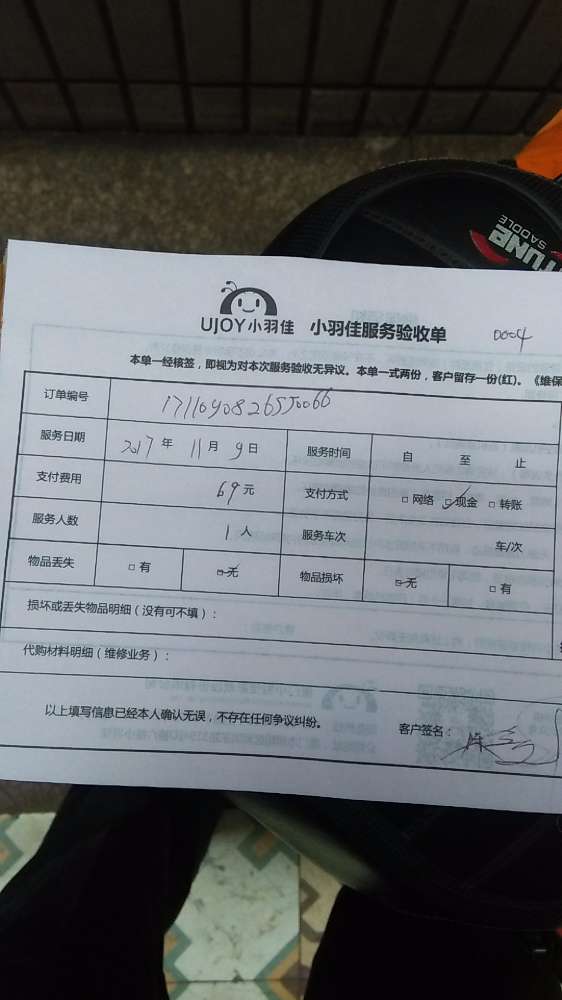 TUNE
SADDLE
UJOY小羽佳 小羽佳服务验收单 0004
本单一经核签，即视为对本次服务验收无异议。本单一式两份，客户留存一份(红)。《维保
订单编号
服务日期 2017 年 11 月 9 日 服务时间 自 至 止
支付费用 69 元 支付方式 □ 网络 ☑ 现金 □ 转账
服务人数 1 人 服务车次 车/次
物品丢失 □ 有 ☑ 无 物品损坏 ☑ 无 □ 有
损坏或丢失物品明细（没有可不填）：
代购材料明细（维修业务）：
以上填写信息已经本人确认无误，不存在任何争议纠纷。 客户签名：